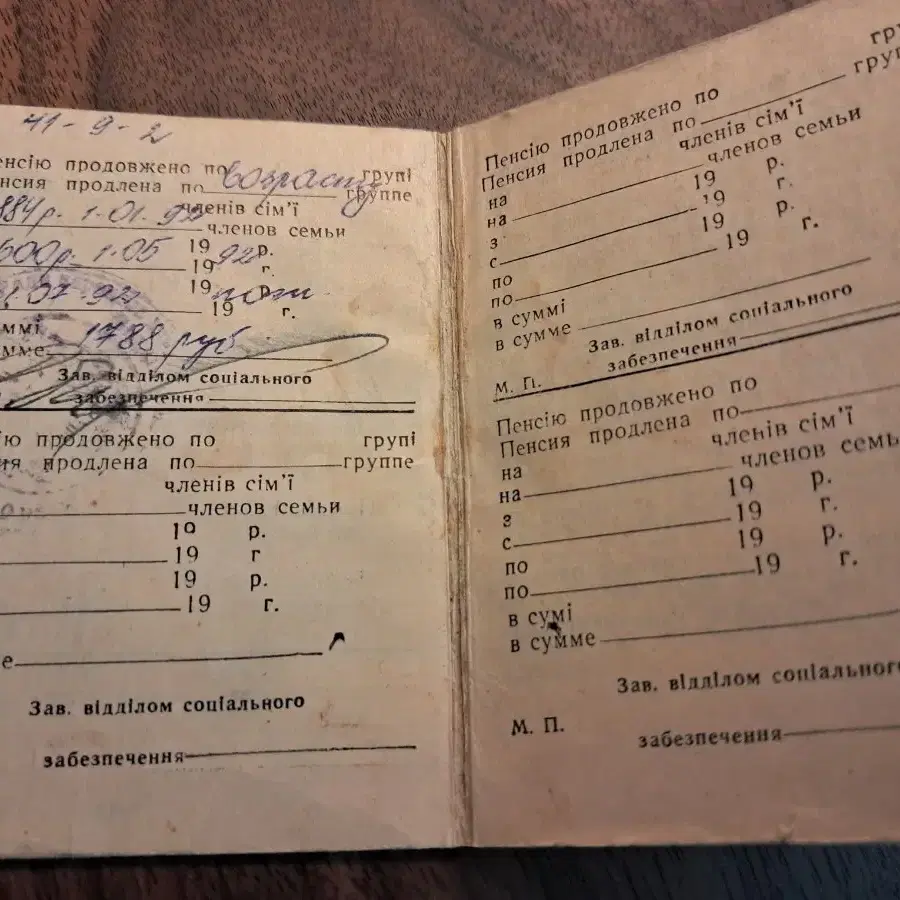 41-9-2
енсію продовжено по групі
нсия продлена по возрасту группе
884р. 1.01.92 членів сім'ї
членов семьи
600р. 1.05 1992 р.
19 г.
.07.92 19 р.
19 г.
уммі
умме 1788 руб
Зав. відділом соціального
забезпечення
ію продовжено по групі
ия продлена по группе
членів сім'ї
членов семьи
19 р.
19 г
19 р.
19 г.
е
Зав. відділом соціального
забезпечення
Пенсію продовжено по гру
Пенсия продлена по груп
на членів сім'ї
на членов семьи
з 19 р.
с 19 г.
по 19 р.
по 19 г.
в суммі
в сумме
Зав. відділом соціального
М. П. забезпечення
Пенсію продовжено по
Пенсия продлена по
на членів сім'ї
на членов семь
з 19 р.
с 19 г.
по 19 р.
по 19 г.
в сумі
в сумме
Зав. відділом соціального
М. П. забезпечення